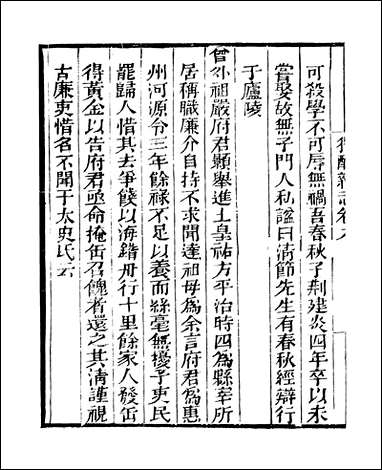 獨醒雜志卷八
可殺學不可辱無禍吾春秋予荆建炎四年卒以未
嘗娶故無子門人私謚曰清節先生有春秋經辯行
于廬陵
曾外祖嚴府君顥舉進士皇祐方平治時四爲縣宰所
居稱職廉介自持不求聞達祖母爲余言府君爲惠
州河源令三年餘祿不足以養而絲毫無擾于吏民
罷歸人惜其去爭餽以海錯舟行十里餘家人發缶
得黃金以告府君亟命掩缶召餽者還之其清謹視
古廉吏惜名不聞于太史氏云